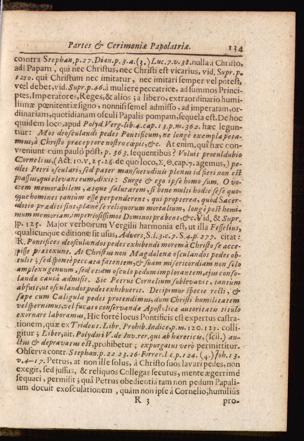 Partes & Cerimoniæ Papolatriæ. 134
contra Stephan. p. 27. Dian. p. 3. a. (3.) Luc. 7. v. 38. nulla à Christo,
ad Papam, qui nec Christus, nec Christi est vicarius, vid. Supr. p.
120. qui Christum nec imitatur, nec imitari semper vel potest,
vel debet, vid. Supr. p. 46. à muliere peccatrice, ad summos Princi-
ptes, Imperatores, Reges, & alios 3.) à libero, extraordinario humi-
limæ pœnitentiæ signo, nonnisi semel admisso, ad imperatam, or-
dinariam, quotidianam osculi Papalis pompam, sequela est. De hoc
quidem loco apud Polyd. Verg. lib. 4. cap. 13. p. m. 362. hæc legun-
tur: Mos deosculandi pedes Pontificum, ne longè exempla peta-
mus, à Christo præceptore nostro cœpit, &c. At enim, quî hæc con-
veniunt cum paulò pòst, p. 363. sequentibus? Voluit procul dubio
Cornelius, (Act. 10. v. 25. 26. de quo loco, Σ, Θ. cap. 7. agemus,) pe-
des Petri osculari, sed pater mansuetudinis plenus id fieri non est
passus, quin elevans eum, dixit: Surge & ego ipse homo sum. O vo-
cem memorabilem, atque salutarem, si bene multi hodie sese quo-
que homines tantùm esse perpenderent, qui propterea, quòd Sacer-
dotio præditi sint, planè se reliquorum mortalium, longè post homi-
num memoriam, imperiosissimos Dominos præbent, &c. Vid. & Supr.
p. 125. Major verborum Vergilii harmonia est, ut illa Fesselius,
qualicunque editione sit usus, Advers. S. l. 4. c. 7. S. 4. p. 277. citat:
R. Pontifices deosculandos pedes exhibendi morem à Christo se acce-
pisse prætexunt. At Christus non Magdalenæ osculandos pedes ob-
tulit; sed sponte peccata fatentem, & suam miseriordiam non solo
amplexu genuum, sed etiam osculo pedum implorantem, ejus conso-
landæ causâ admisit. Sic Petrus Cornelium sublevavit, tantum
abfuit, ut osculandos pedes exhiberet. Decipimur specie recti, &
sæpe cum Caligula pedes protendimus, dum Christi humilitatem
exprimimus, vel fucata conservandæ Apostolicæ autoritatis titulo
exornare laboramus. Hic forte locus Pontificiis est expertus castra-
tionem, quæ ex Trident. Libr. Prohib. Indice, p. m. 120. 123. colli-
gitur; Liber, ait, Polydori V. de Inv. rer. qui ab hæreticis, (scil.) au-
ctus & depravatus est, prohibetur; expurgatus verò permittitur.
Observa contr. Stephan. p. 22. 23. 26. Forrer. l. c. p. 124. (4.) Joh. 13.
v. 4-17. Petrus, at non ille solus, à Christo suos lavari pedes, non
exegit, sed jussus, & reliquos Collegas secutus, mente ægerrimè
sequaci, permisit; quâ Petrus obedientiâ tam non pedum Papali-
um docuit exosculationem, quàm non ipse à Cornelio, humilius
R 3 pro-